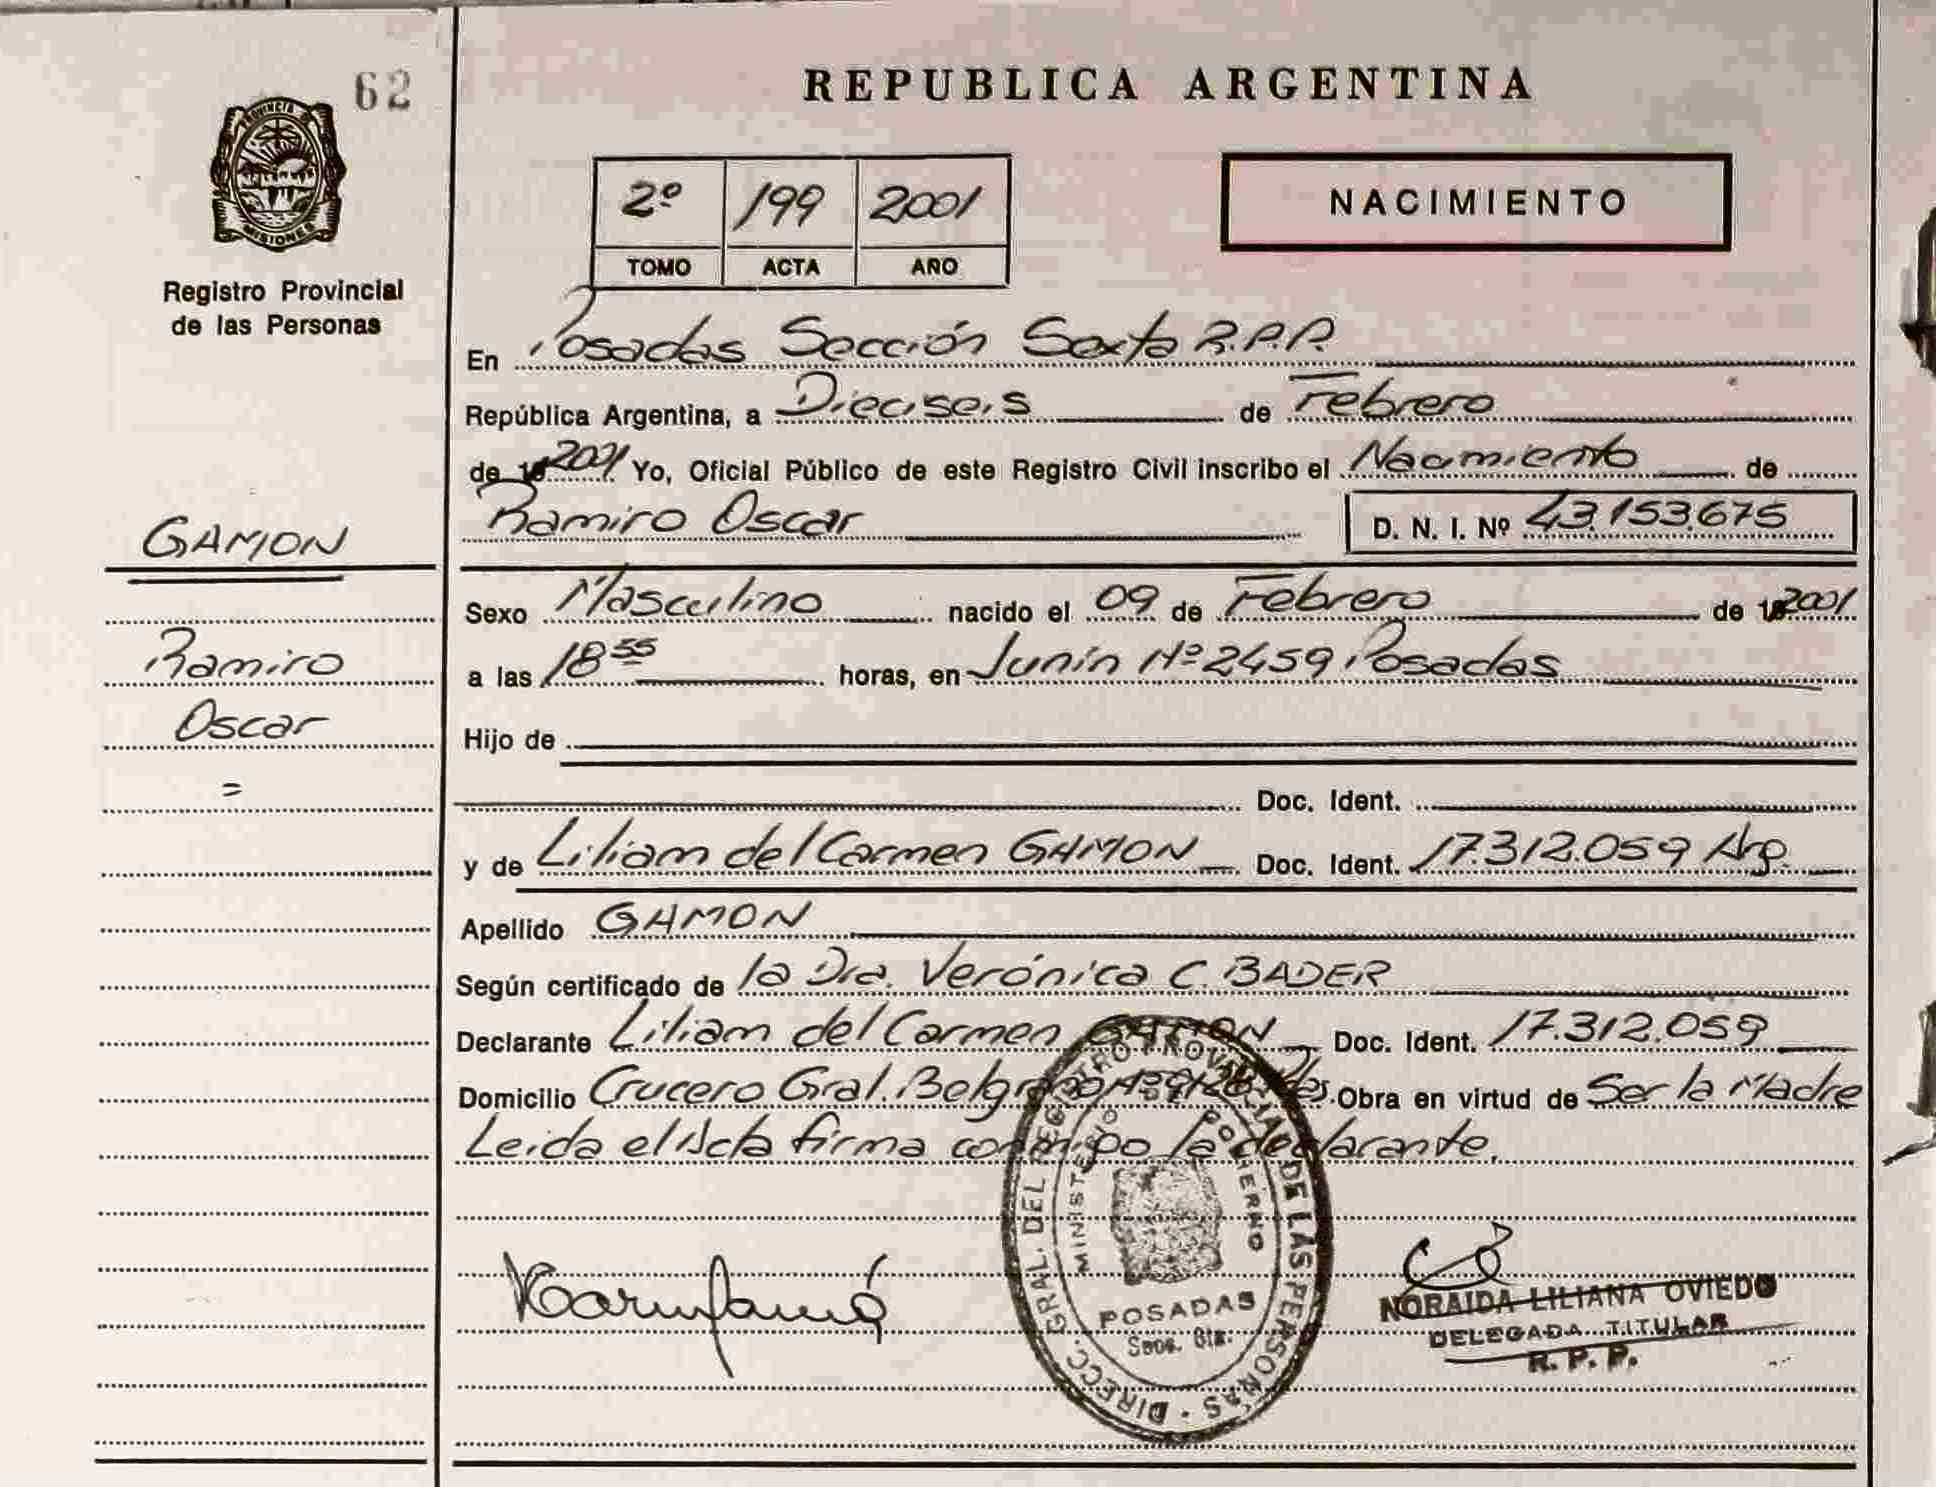 62
REPUBLICA ARGENTINA
PROVINCIA DE
MISIONES
Registro Provincial
de las Personas
2º 199 2001
TOMO ACTA AÑO
NACIMIENTO
En Posadas Sección Sexta R.P.P.
República Argentina, a Dieciseis de Febrero
de 19 2001 Yo, Oficial Público de este Registro Civil inscribo el Nacimiento de
Ramiro Oscar D. N. I. Nº 43.153.675
GAMON
Ramiro
Oscar
=
Sexo Masculino nacido el 09 de Febrero de 19 2001
a las 18 55 horas, en Junín Nº 2459 Posadas
Hijo de
Doc. Ident.
y de Liliam del Carmen GAMON Doc. Ident. 17.312.059 Arg.
Apellido GAMON
Según certificado de la Dra. Verónica C. BADER
Declarante Liliam del Carmen GAMON Doc. Ident. 17.312.059
Domicilio Crucero Gral. Belgrano Obra en virtud de Ser la Madre
Leida el Acta firma conmigo la declarante.
DIRECC. GRAL. DEL REGISTRO PROVINCIAL DE LAS PERSONAS
MINISTERIO DE GOBIERNO
POSADAS
NORAIDA LILIANA OVIEDO
DELEGADA TITULAR
R. P. P.